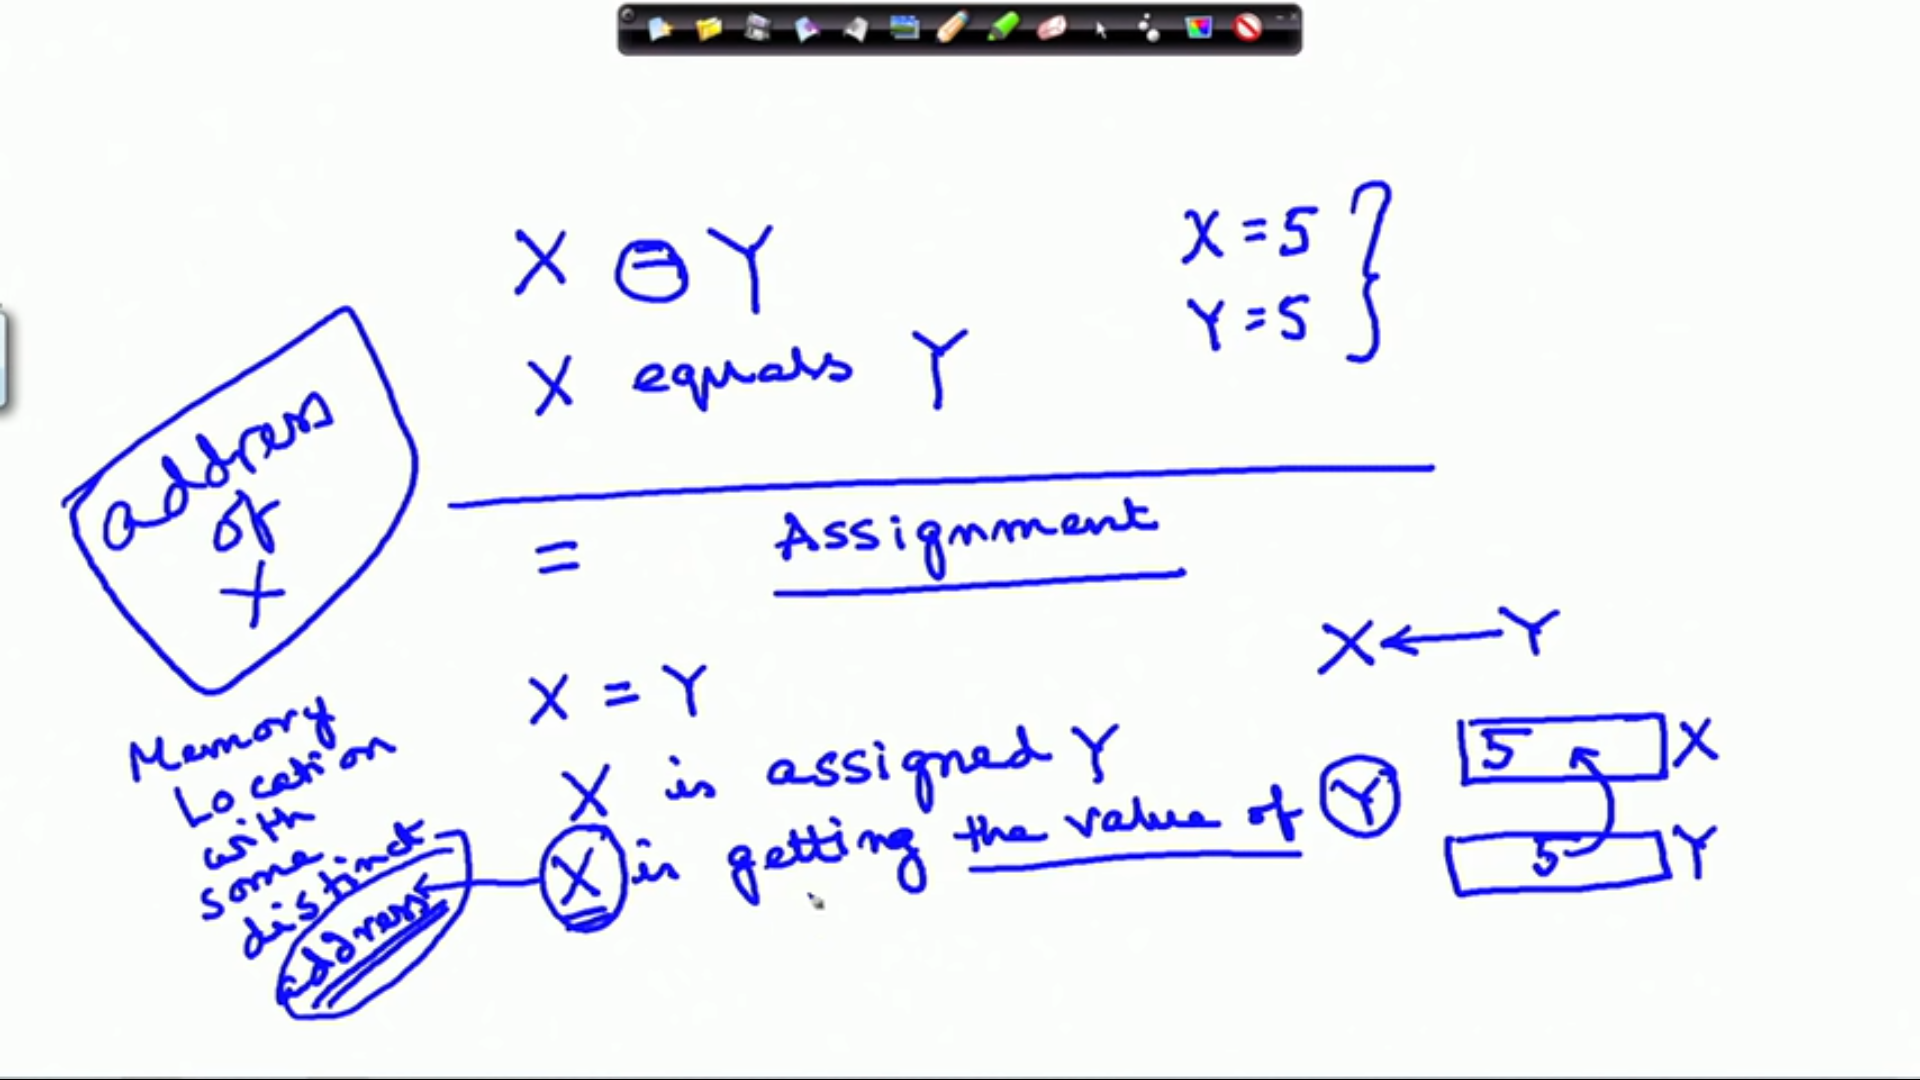 X = Y
X equals Y
X = 5
Y = 5
address
of
X
= Assignment
X = Y
X ← Y
X is assigned Y
X is getting the value of Y
5 X
5 Y
Memory
Location
with
some
distinct
address